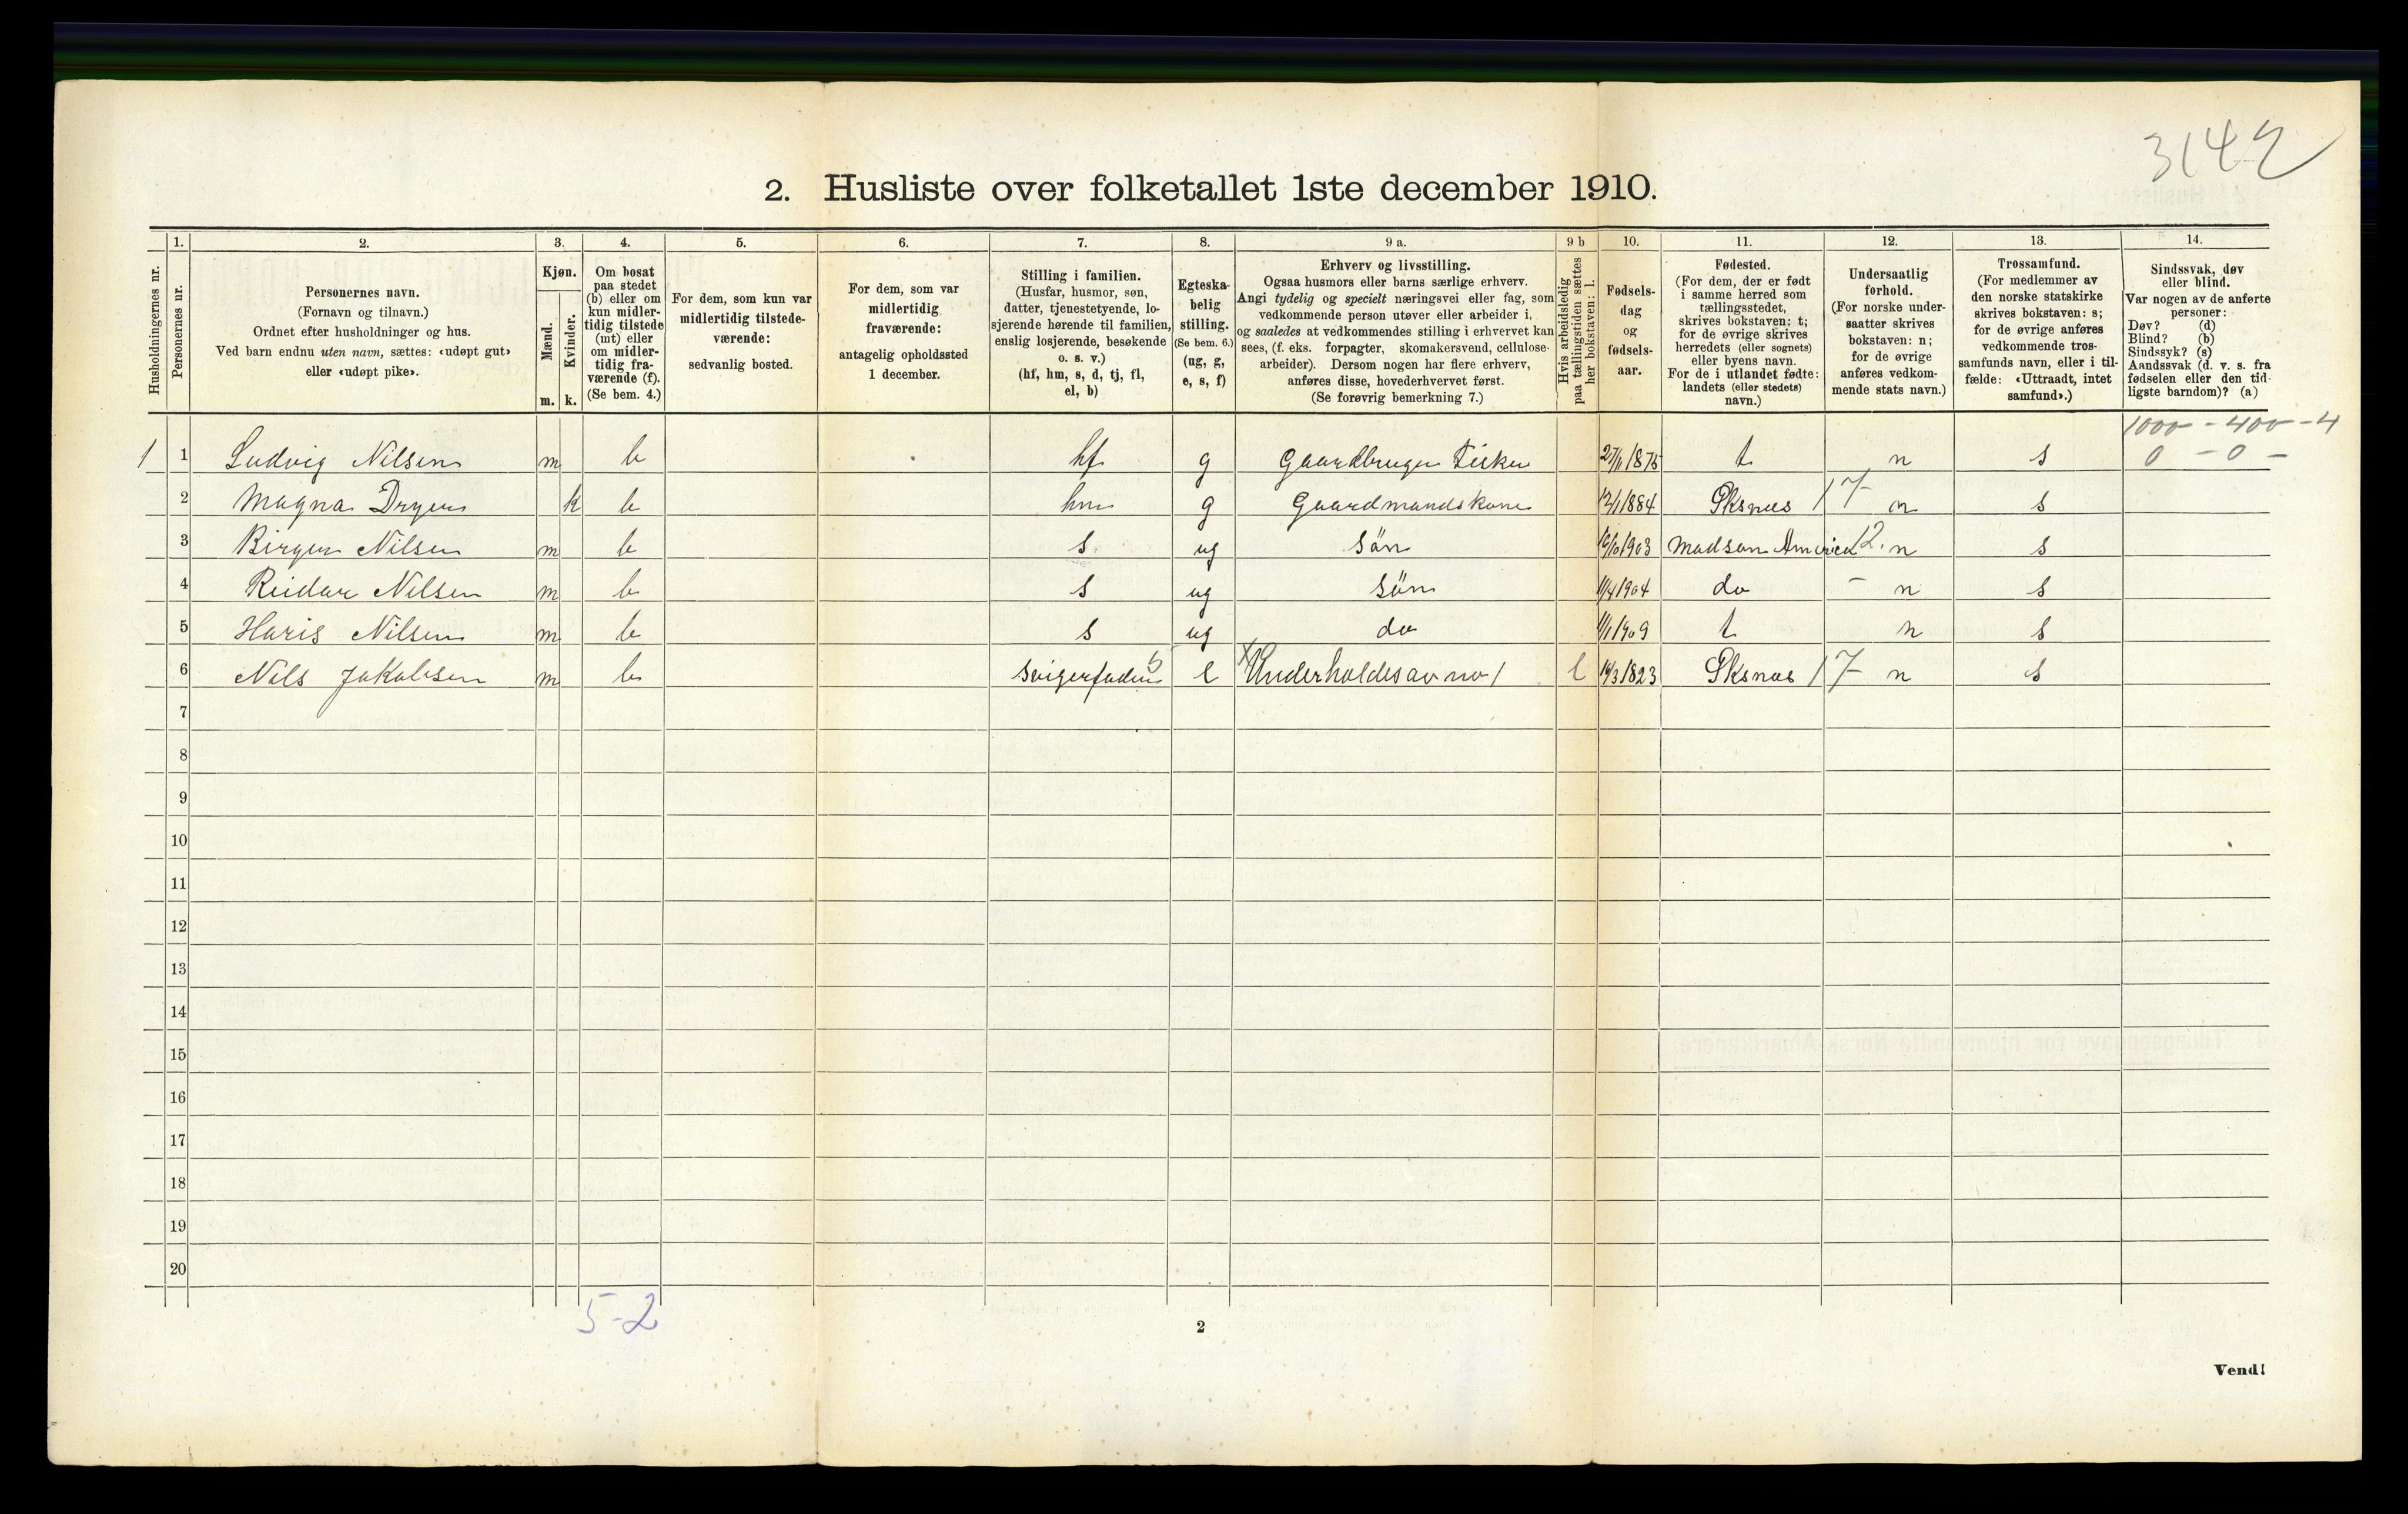 3142
2. Husliste over folketallet 1ste december 1910.
1. 2. 3. 4. 5. 6. 7. 8. 9 a. 9 b 10. 11. 12. 13. 14.
Husholdningernes nr.
Personernes nr.
Personernes navn.
(Fornavn og tilnavn.)
Ordnet efter husholdninger og hus.
Ved barn endnu uten navn, sættes: «udøpt gut»
eller «udøpt pike».
Kjøn.
Mænd.
Kvinder.
m. k.
Om bosat
paa stedet
(b) eller om
kun midler-
tidig tilstede
(mt) eller
om midler-
tidig fra-
værende (f).
(Se bem. 4.)
For dem, som kun var
midlertidig tilstede-
værende:
sedvanlig bosted.
For dem, som var
midlertidig
fraværende:
antagelig opholdssted
1 december.
Stilling i familien.
(Husfar, husmor, søn,
datter, tjenestetyende, lo-
sjerende hørende til familien,
enslig losjerende, besøkende
o. s. v.)
(hf, hm, s, d, tj, fl,
el, b)
Egteska-
belig
stilling.
(Se bem. 6.)
(ug, g,
e, s, f)
Erhverv og livsstilling.
Ogsaa husmors eller barns særlige erhverv.
Angi tydelig og specielt næringsvei eller fag, som
vedkommende person utøver eller arbeider i,
og saaledes at vedkommendes stilling i erhvervet kan
sees, (f. eks. forpagter, skomakersvend, cellulose-
arbeider). Dersom nogen har flere erhverv,
anføres disse, hovederhvervet først.
(Se forøvrig bemerkning 7.)
Hvis arbeidsledig
paa tællingstiden sættes
her bokstaven: l.
Fødsels-
dag
og
fødsels-
aar.
Fødested.
(For dem, der er født
i samme herred som
tællingsstedet,
skrives bokstaven: t;
for de øvrige skrives
herredets (eller sognets)
eller byens navn.
For de i utlandet fødte:
landets (eller stedets)
navn.)
Undersaatlig
forhold.
(For norske under-
saatter skrives
bokstaven: n;
for de øvrige
anføres vedkom-
mende stats navn.)
Trossamfund.
(For medlemmer av
den norske statskirke
skrives bokstaven: s;
for de øvrige anføres
vedkommende tros-
samfunds navn, eller i til-
fælde: «Uttraadt, intet
samfund».)
Sindssvak, døv
eller blind.
Var nogen av de anførte
personer:
Døv? (d)
Blind? (b)
Sindssyk? (s)
Aandssvak (d. v. s. fra
fødselen eller den tid-
ligste barndom)? (a)
1000 - 400 - 4
1 1 Ludvig Nilsen m b hf g Gaardbruger Fisker 27/11 1875 t n s 0 - 0 -
2 Magna Dryer k b hm g Gaardmandskone 12/1 1884 17 n s
3 Birger Nilsen m b s ug Sön 1903 Madson America 2. n s
4 Reidar Nilsen m b s ug Sön 1904 do - n s
5 Haris Nilsen m b s ug do 1/1 1909 t n s
6 Nils Jakobsen m b Svigerfader b e X Underholdes av no 1 l 14/3 1823 17 n s
7
8
9
10
11
12
13
14
15
16
17
18
19
20
5-2
2
Vend!